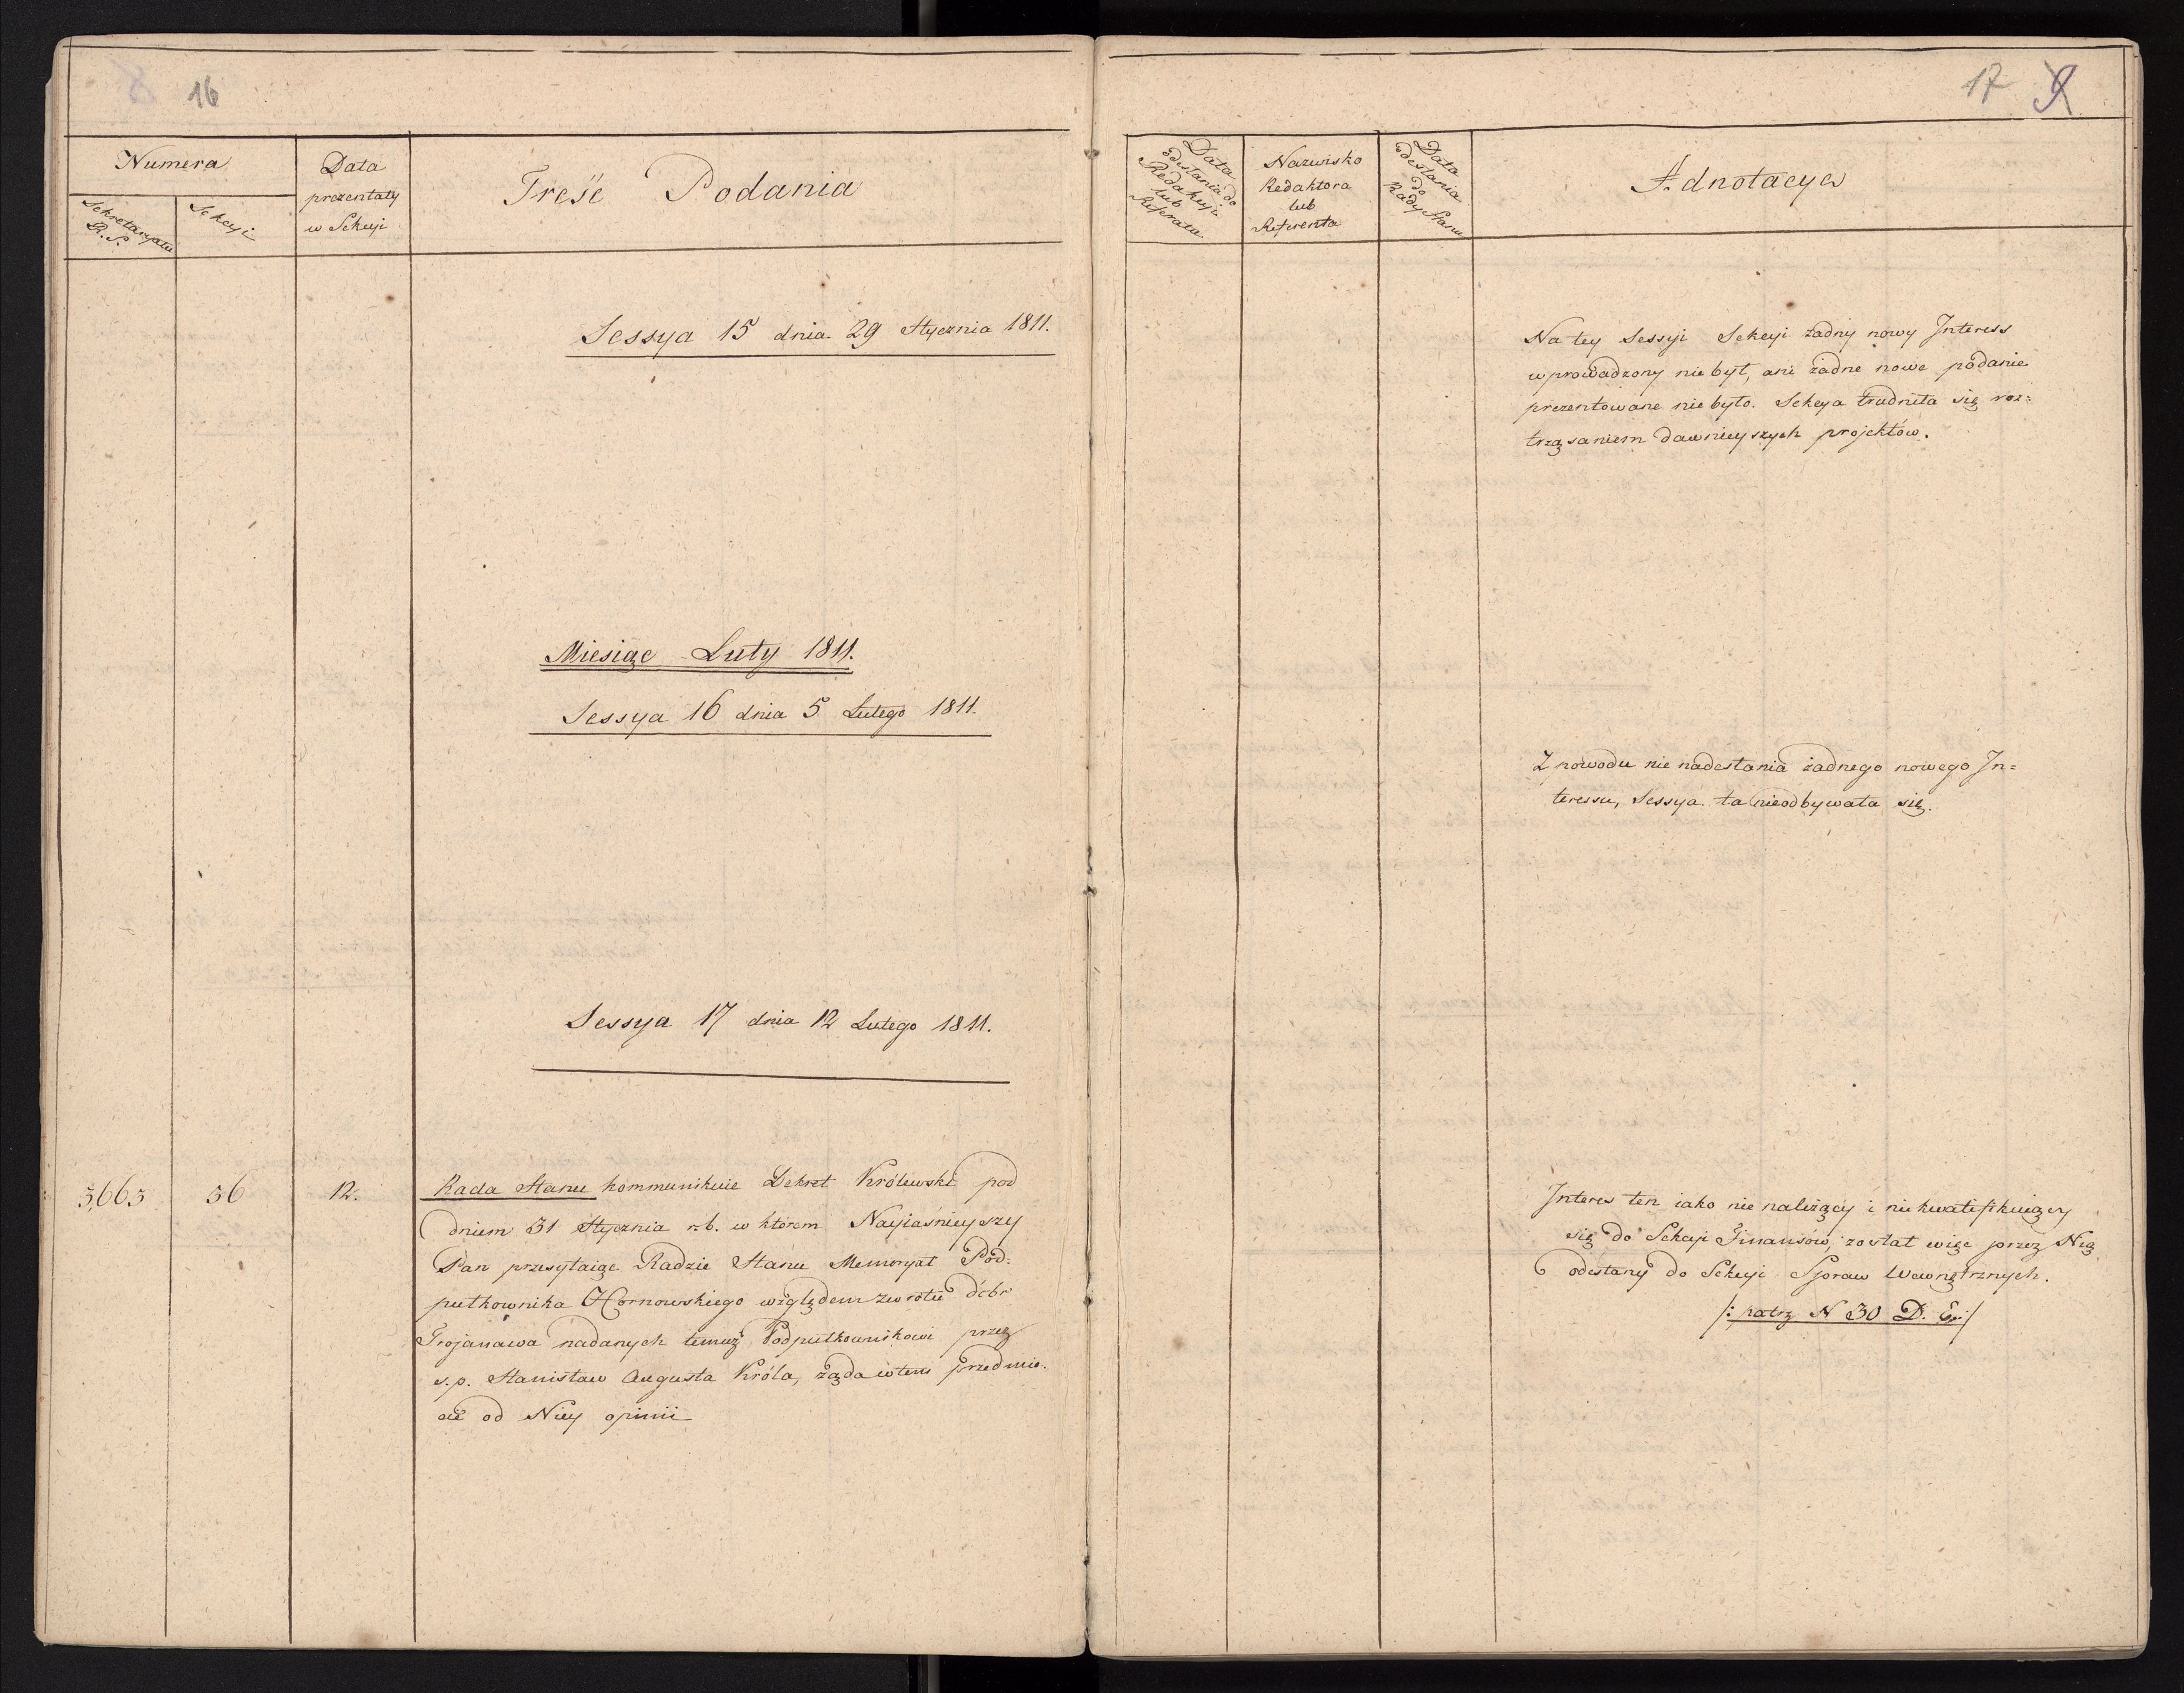 16
Numera
Sekretaryatu
R. S.
Sekcyi
Data
prezentaty
w Sekcyi
Treść Podania
Sessya 15 dnia 29 Stycznia 1811.
Miesiąc Luty 1811.
Sessya 16 dnia 5 Lutego 1811.
Sessya 17 dnia 12 Lutego 1811.
3,663 56 12.
Rada Stanu kommunikuie Dekret Królewski pod
dniem 31 Stycznia r.b. w którem Nayiaśnieyszy
Pan przesyłaiąc Radzie Stanu Memoryał Pod=
pułkownika Hornowskiego względem zwrotu dóbr
Trojanawa nadanych temuż Podpułkownikowi przez
s.p. Stanisław Augusta Króla, żąda wtem przedmio=
cie od Niey opinii
17 9
Data
odesłania do
Redakcyi
lub
Referata
Nazwisko
Redaktora
lub
Referenta
Data
odesłania
do
Rady Stanu
Adnotacya
Na tey Sessyi Sekcyi żadny nowy Interess
wprowadzony nie był, ani żadne nowe podanie
prezentowane nie było. Sekcya trudniła się roz=
trząsaniem dawnieyszych projektów.
Z powodu nie nadesłania żadnego nowego In=
teressu, Sessya ta nieodbywała się.
Interes ten iako nie należący i nie kwalifikuiący
się do Sekcyi Finansów, został więc przez Nią
odesłany do Sekcyi Spraw Wewnętrznych.
/: patrz N 30 D. Ex:/